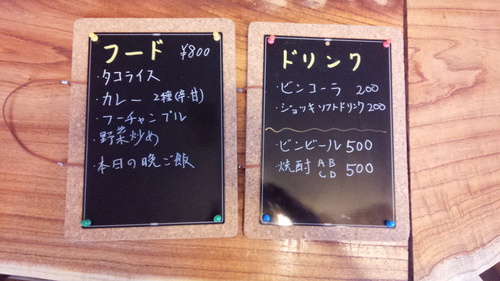 フード ¥800
・タコライス
・カレー 2種(辛・甘)
・フーチャンプル
・野菜炒め
・本日の晩ご飯
ドリンク
・ビンコーラ 200
・ジョッキソフトドリンク 200
・ビンビール 500
・焼酎 AB CD 500